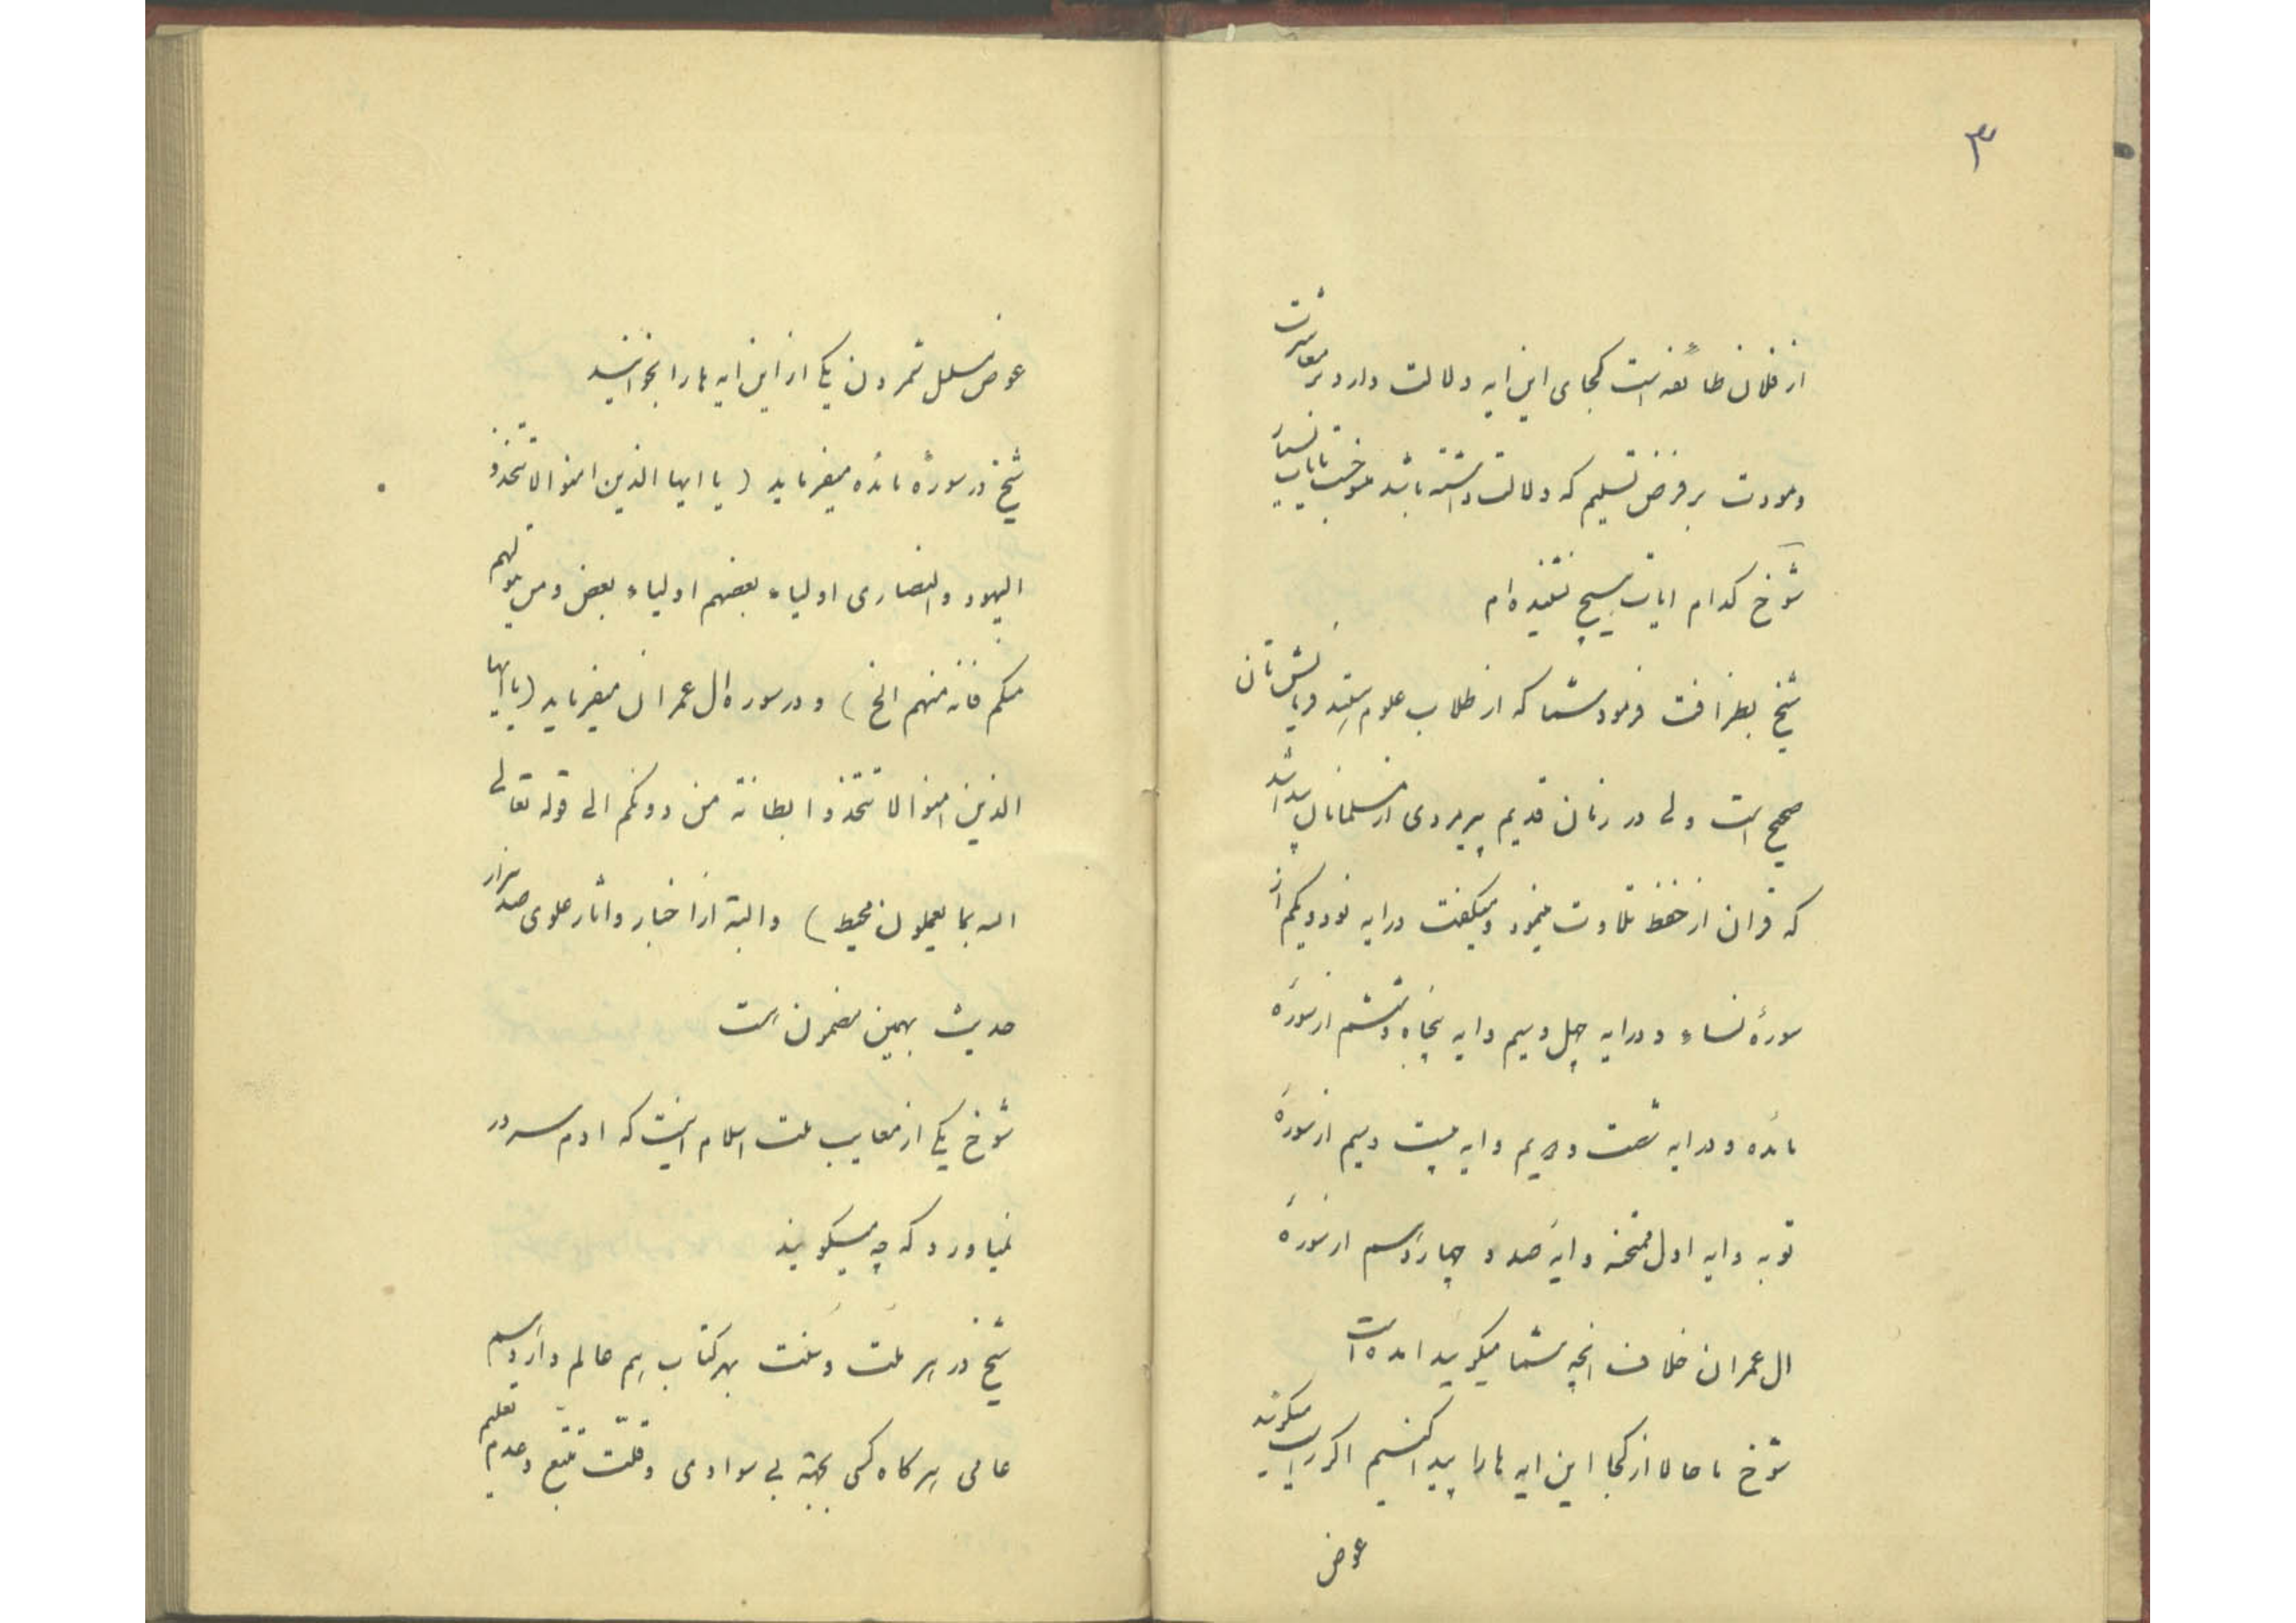 ۳
از فلان طائفه است کجای این ایه دلالت دارد بر معاشرت
ومودت بر فرض تسلیم که دلالت داشته باشد منسوخست بایات بسیار
شوخ کدام ایات هیچ نشنیده ام
شیخ بظرافت فرمود شما که از طلاب علوم هستید فرمایش تان
صحیح است ولی در زمان قدیم پیرمردی از مسلمانان پیدا شد
که قران از حفظ تلاوت مینمود ومیگفت در ایه نود ویکم از
سورهٔ نساء و در ایه چهل وسیم وایه پنجاه وششم از سورهٔ
مائده و در ایه شصت و دویم وایه بیست وسیم از سورهٔ
توبه وایه اول ممتحنه وایه صد و چهاردهم از سورهٔ
ال عمران خلاف انچه شما میگوئید امده است
شوخ ما حالا از کجا این ایه ها را پیدا کنیم اگر راست میگوئید
عوض
عوض مسلسل شمردن یکی از این ایه ها را بخوانید
شیخ در سورهٔ مائده میفرماید (یا ایها الذین امنوا لا تتخذوا
الیهود والنصاری اولیاء بعضهم اولیاء بعض ومن یتولهم
منکم فانه منهم الخ) و در سوره ال عمران میفرماید (یا ایها
الذین امنوا لا تتخذوا بطانة من دونکم الی قوله تعالی
الله بما یعملون محیط) والبته از اخبار واثار علوی صد هزار
حدیث بهمین مضمون است
شوخ یکی از معایب ملت اسلام اینست که ادم سر در
نمیاورد که چه میگویند
شیخ در هر ملت وسلت بهر کتاب هم عالم دارد هم
عامی هر کاه کسی بجهته بی سوادی وقلّت تتبّع وعدم تعلیم